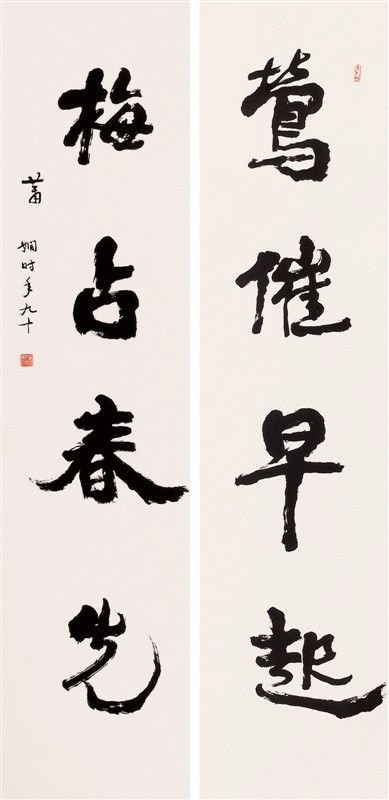 莺催早起
梅占春先
萧娴时年九十